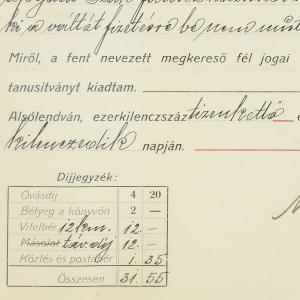 ki a váltát fizetésre be nem mut
Miről, a fent nevezett megkereső fél jogai
tanusitványt kiadtam.
Alsólendván, ezerkilenczszáz tizenkettő
kilenczedik napján.
Díjjegyzék:
Óvásdíj 4 20
Bélyeg a könyvön 2 —
Vitelbér 12 km. 12. —
Másolat távdíj 12. —
Közlés és postabér 1. 35
Összesen 31. 55